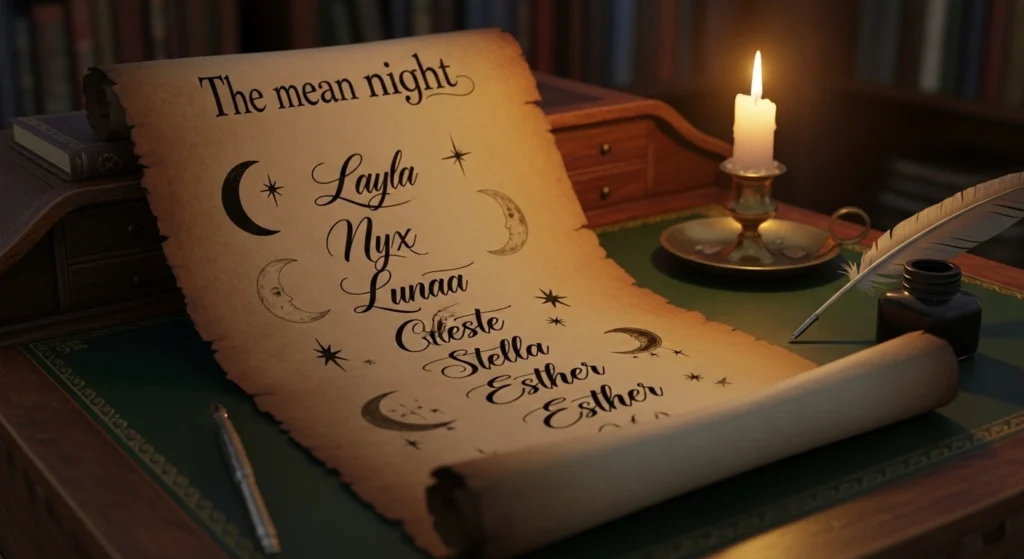 The mean night
Layla
Nyx
Lunaa
Celeste
Stella
Esther
Esther